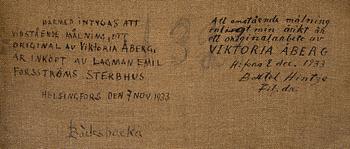 DÄRMED INTYGAS ATT
VIDSTÅENDE MÅLNING, ETT
ORIGINAL AV VIKTORIA ÅBERG,
ÄR INKÖPT AV LAGMAN EMIL
FORSSTRÖMS STERBHUS
HELSINGFORS DEN 7 NOV. 1933
Att omstående målning
enligt min åsikt är
ett originalarbete av
VIKTORIA ÅBERG
H:fors 2 dec. 1933
Bertel Hintze
Fil. dr.